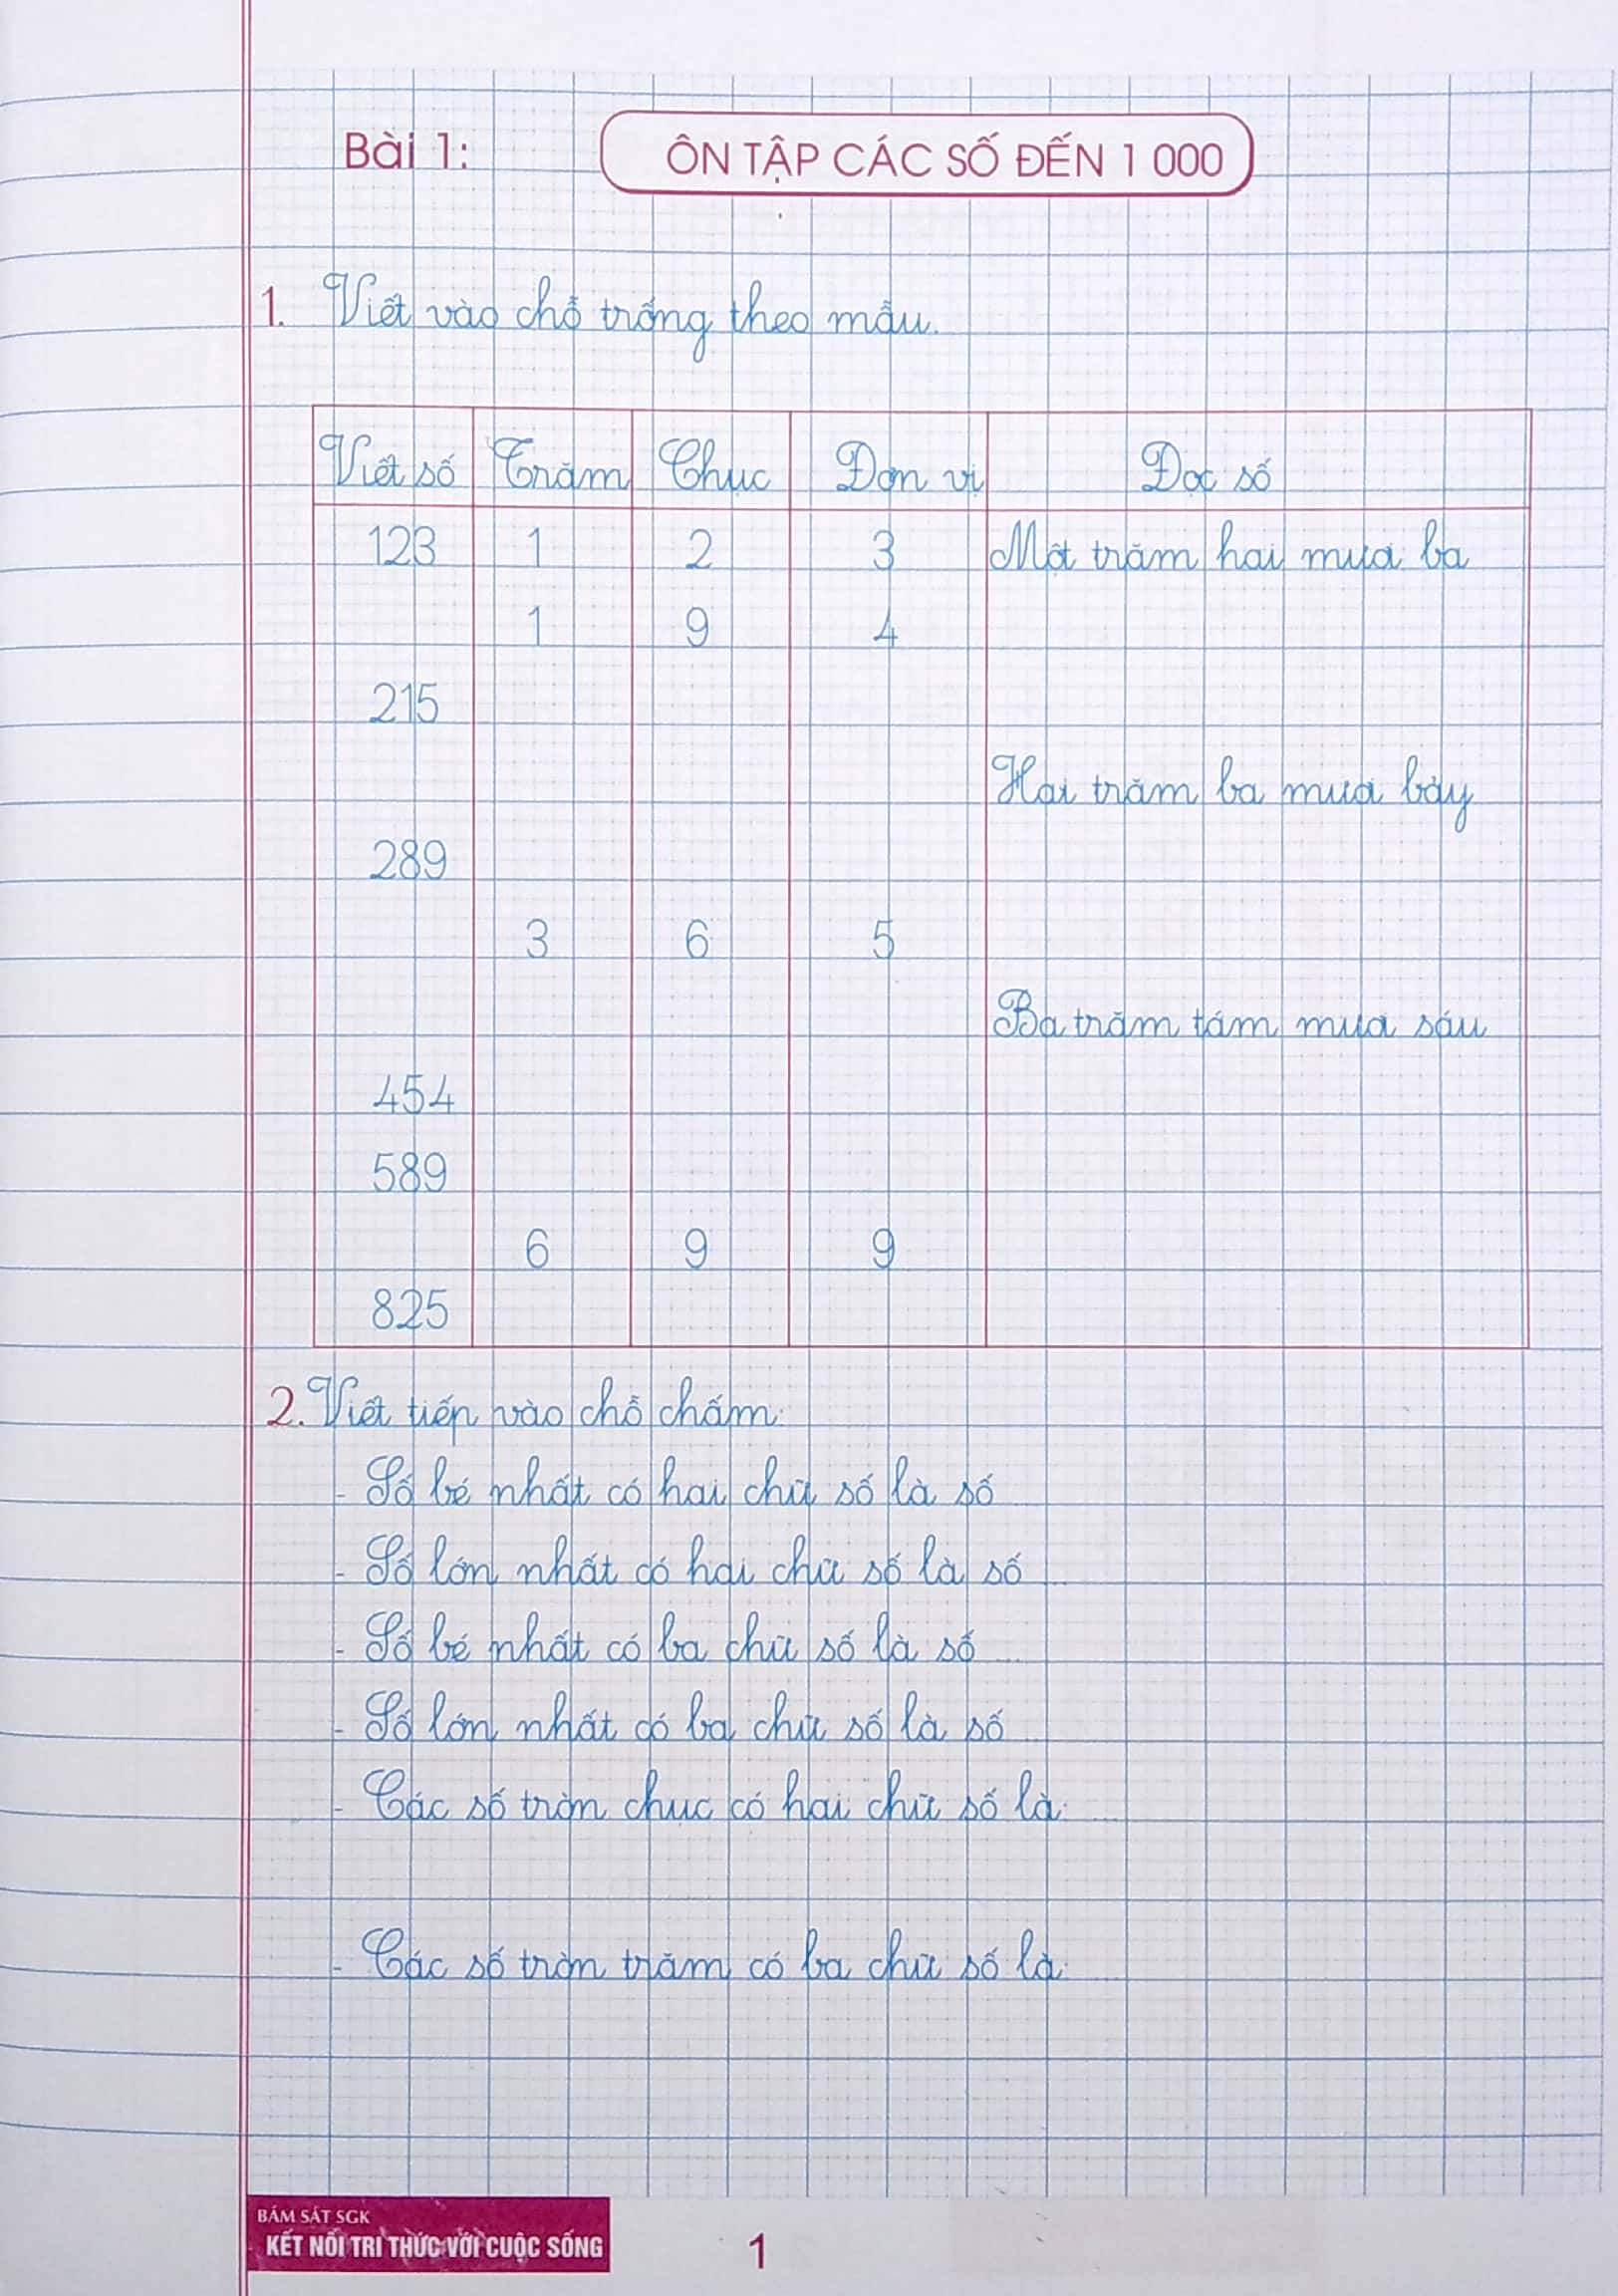 Bài 1:
ÔN TẬP CÁC SỐ ĐẾN 1 000
1. Viết vào chỗ trống theo mẫu.
Viết số Trăm Chục Đơn vị Đọc số
123 1 2 3 Một trăm hai mươi ba
1 9 4
215
Hai trăm ba mươi bảy
289
3 6 5
Ba trăm tám mươi sáu
454
589
6 9 9
825
2. Viết tiếp vào chỗ chấm:
- Số bé nhất có hai chữ số là số ...
- Số lớn nhất có hai chữ số là số ...
- Số bé nhất có ba chữ số là số ...
- Số lớn nhất có ba chữ số là số ...
- Các số tròn chục có hai chữ số là: ...
- Các số tròn trăm có ba chữ số là: ...
BÁM SÁT SGK
KẾT NỐI TRI THỨC VỚI CUỘC SỐNG
1